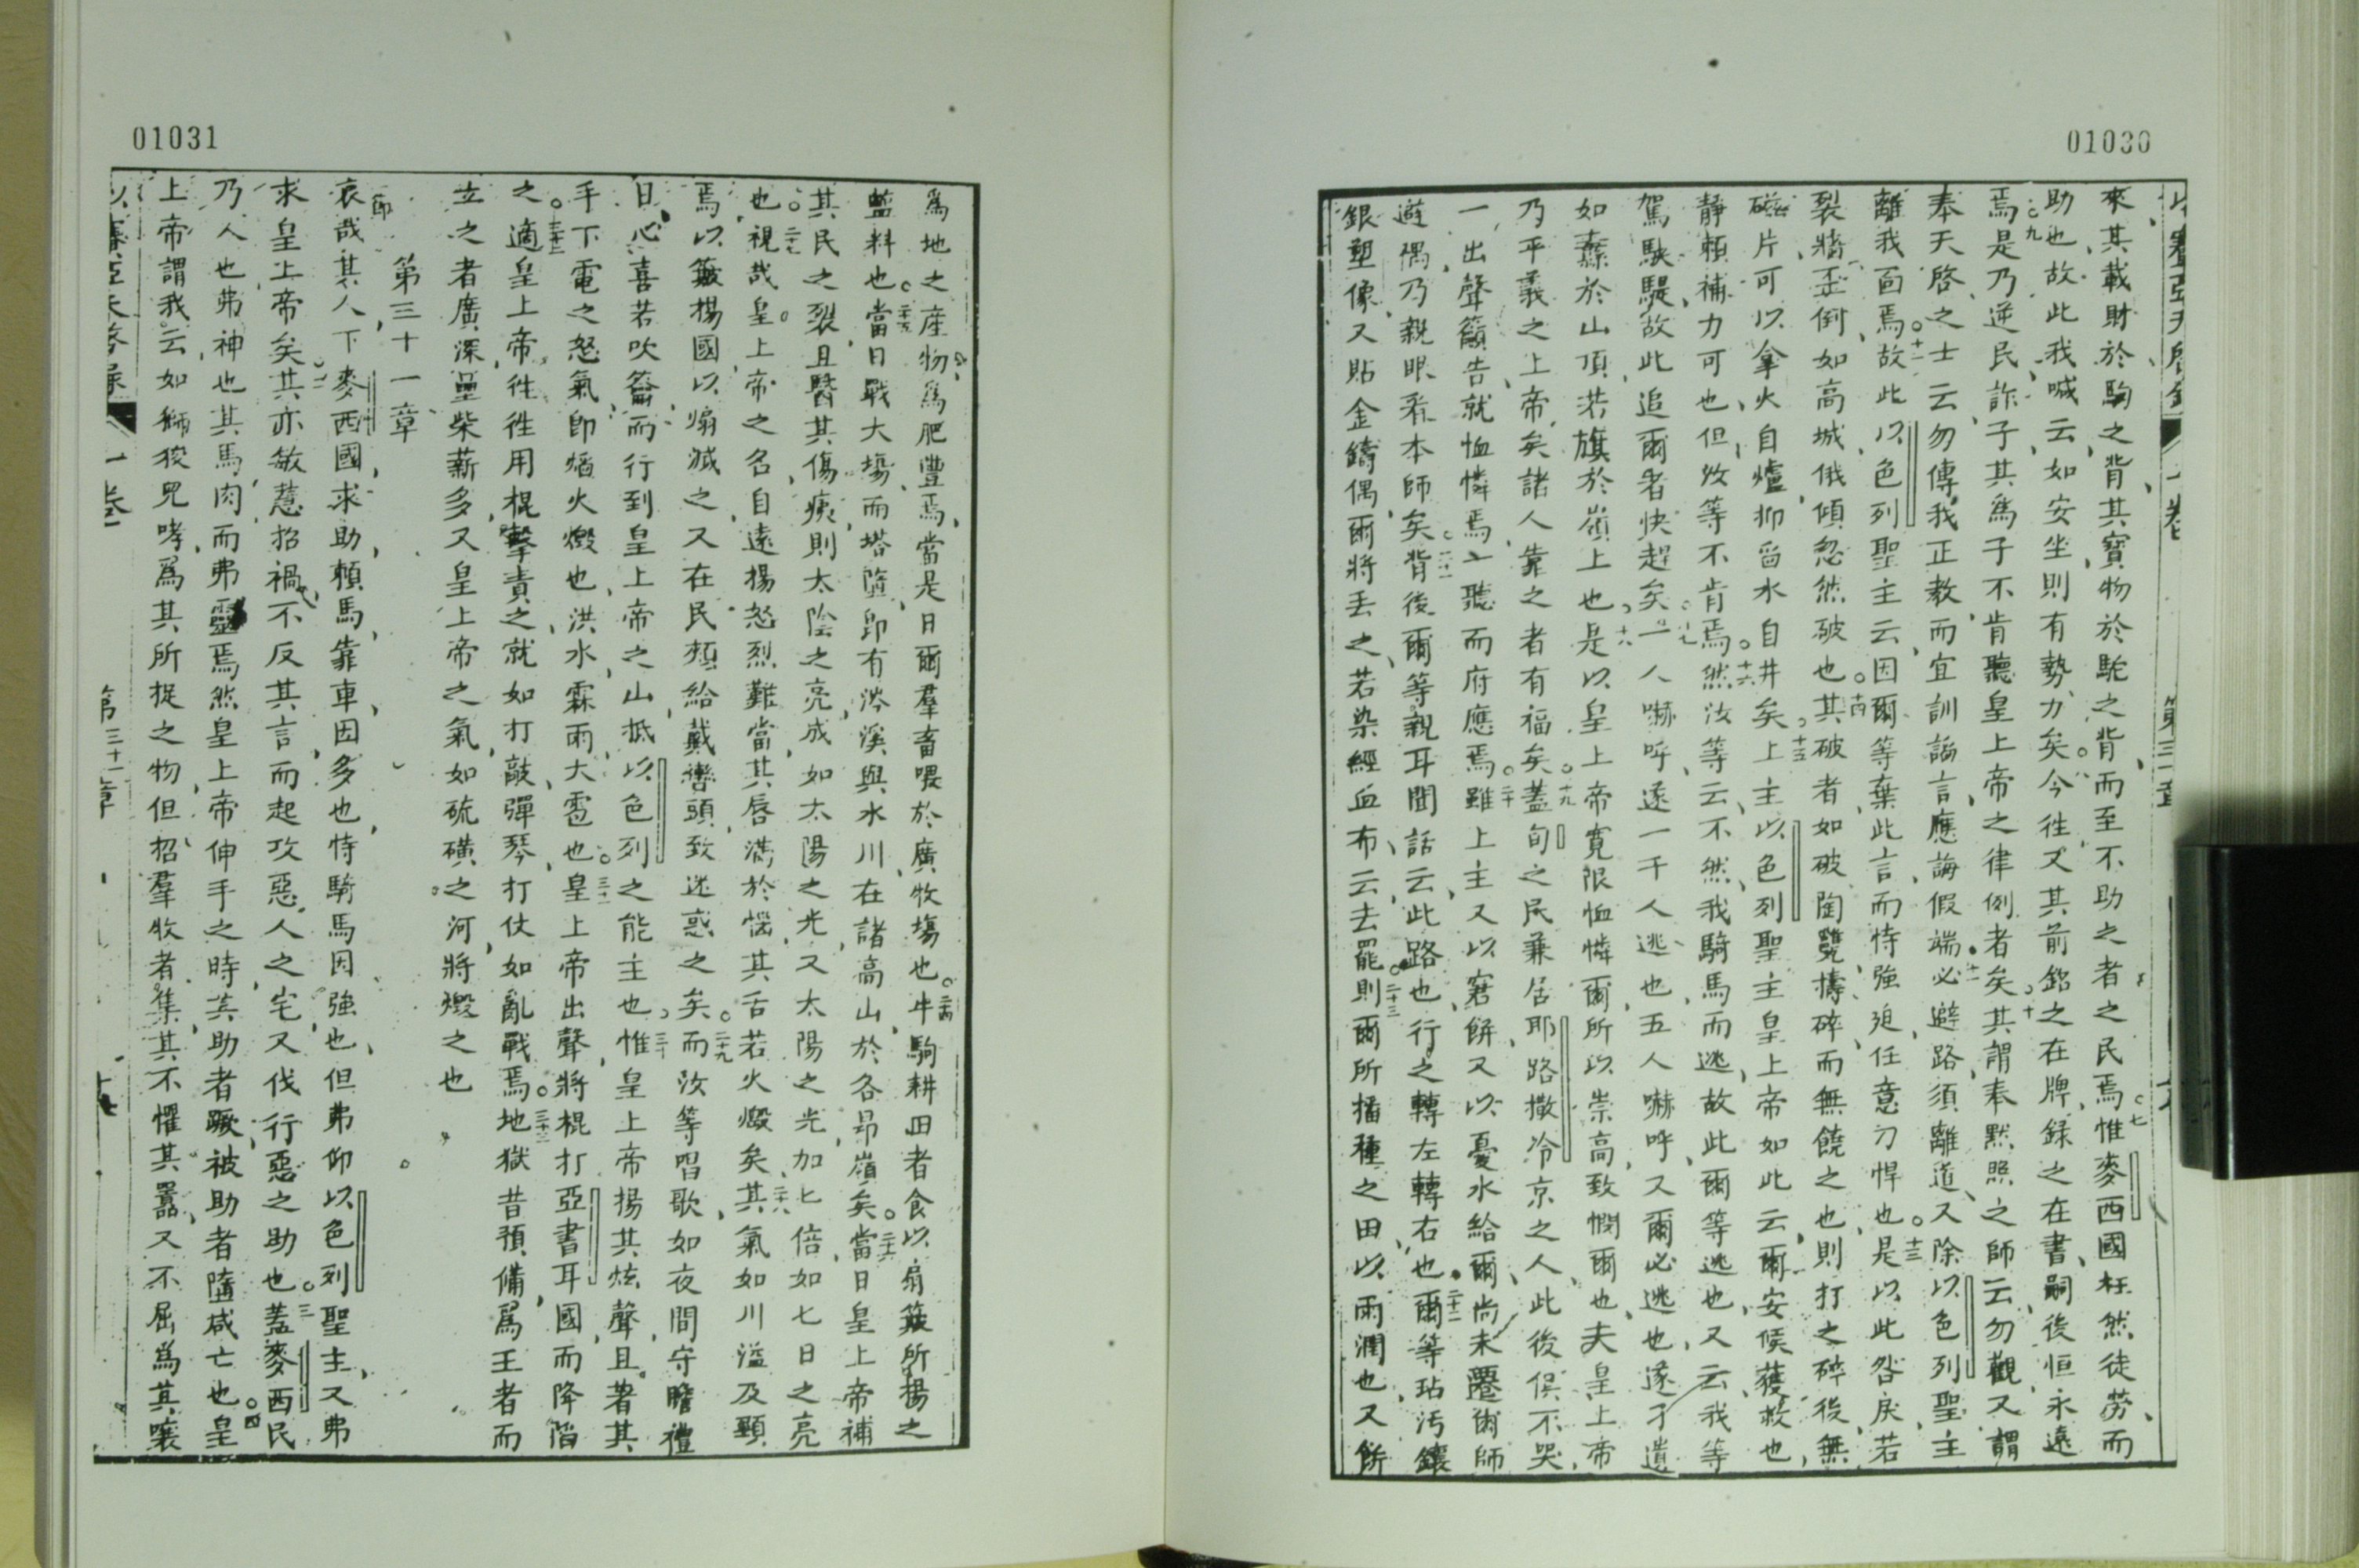 01030
來其載財於駒之背其寳物於駝之背而至不助之者之民焉○七惟麥西國枉然徒劳而
助也故此我喊云如安坐則有勢力矣○八今徃又其前銘之在牌録之在書嗣後恒永遠
焉○九是乃逆民詐子其為子不肯聽皇上帝之律例者矣○十其謂奉黙照之師云勿觀又謂
奉天啓之士云勿傳我正教而宜訓謟言應誨假端○十一必避路須離道又除以色列聖主
離我面焉○十二故此以色列聖主云因爾等棄此言而恃強廹任意刁悍也○十三是以此咎戾若
裂牆歪倒如高城俄傾忽然破也○十四其破者如破陶甕擣碎而無饒之也則打之碎後無
磁片可以拿火自爐抑舀水自井矣○十五上主以色列聖主皇上帝如此云爾安候獲救也
静頼補力可也但汝等不肯焉○十六然汝等云不然我騎馬而逃故此爾等逃也又云我等
駕駃騠故此追爾者快趕矣○十七一人嚇呼遂一千人逃也五人嚇呼又爾必逃也遂孑遺
如纛於山頂若旗於嶺上也○十八是以皇上帝寛限恤憐爾所以崇高致憫爾也夫皇上帝
乃平義之上帝矣諸人靠之者有福矣○十九蓋旬之民兼居耶路撒冷京之人此後俱不哭
一出聲籲告就恤憐焉一聽而府應焉○二十雖上主又以窘餅又以憂水給爾尚未遷爾師
避偶乃親眼看本師矣○二十一背後爾等親耳聞話云此路也行之轉左轉右也○二十二爾等玷汚鑲
銀塑像又貼金鑄偶爾將丢之若染經血布云去罷○二十三則爾所播種之田以雨潤也又餅
01031
為地之産物為肥豐焉當是日爾羣畜喂於廣牧塲也○二十四牛駒耕田者食以扇簸所揚之
藍料也○二十五當日戰大塲而塔墮卽有涔溪與水川在諸高山於各昂嶺矣○二十六當日皇上帝補
其民之裂且醫其傷痍則太陰之亮成如太陽之光又太陽之光加七倍如七日之亮
也○二十七視哉皇上帝之名自遠揚怒烈難當其唇滿於惱其舌若火燬矣○二十八其氣如川溢及頸
焉以簸揚國以煽滅之又在民頰給戴轡頭致迷惑之矣○二十九而汝等唱歌如夜間守瞻禮
日心喜若吹籥而行到皇上帝之山抵以色列之能主也○三十惟皇上帝揚其炫聲且著其
手下電之怒氣卽熖火燬也洪水霖雨大雹也○三十一皇上帝出聲將棍打亞書耳國而降陷
之○三十二適皇上帝徃徃用棍擊責之就如打敲彈琴打仗如亂戰焉○三十三地獄昔預備為王者而
立之者廣深壘柴薪多又皇上帝之氣如硫磺之河將燬之也
第三十一章
節
哀哉其人下麥西國求助頼馬靠車因多也恃騎馬因強也但弗仰以色列聖主又弗
求皇上帝矣○二其亦敏慧招禍不反其言而起攻惡人之宅又伐行惡之助也○三蓋麥西民
乃人也弗神也其馬肉而弗靈焉然皇上帝伸手之時其助者蹶被助者墮咸亡也○四皇
上帝謂我云如獅狻兒哮為其所捉之物但招羣牧者集其不懼其囂又不屈為其嚷
第三十一章